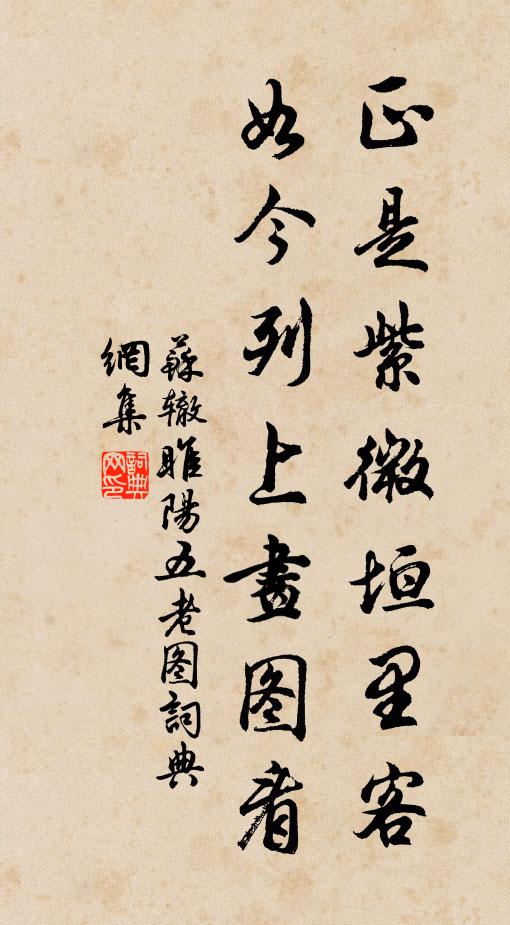 正是紫微垣里客
如今列上畫图看
蘇辙睢陽五老图詞典
網集
詞典
网印